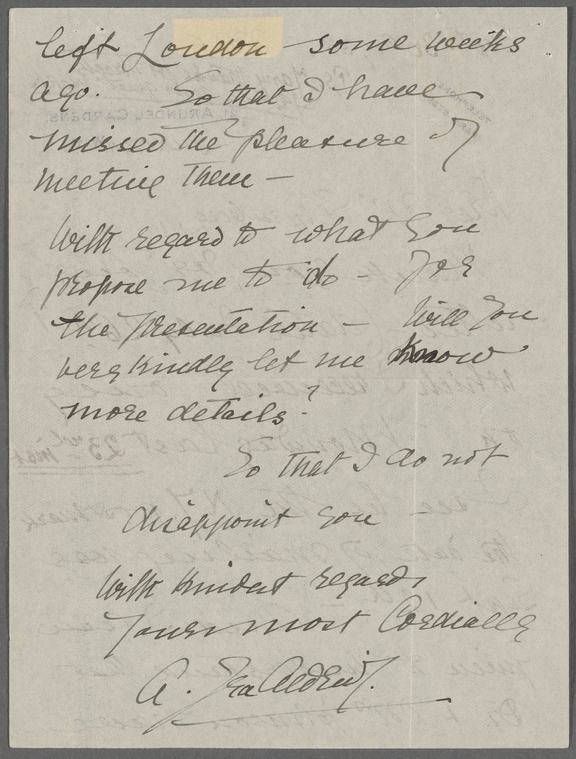 left London some weeks
ago. So that I have
missed the pleasure of
meeting them —
With regard to what you
propose me to do — for
the presentation — Will you
very kindly let me know
more details?
So that I do not
disappoint you —
With kindest regards
Yours most Cordially
A. Ira Aldridge.